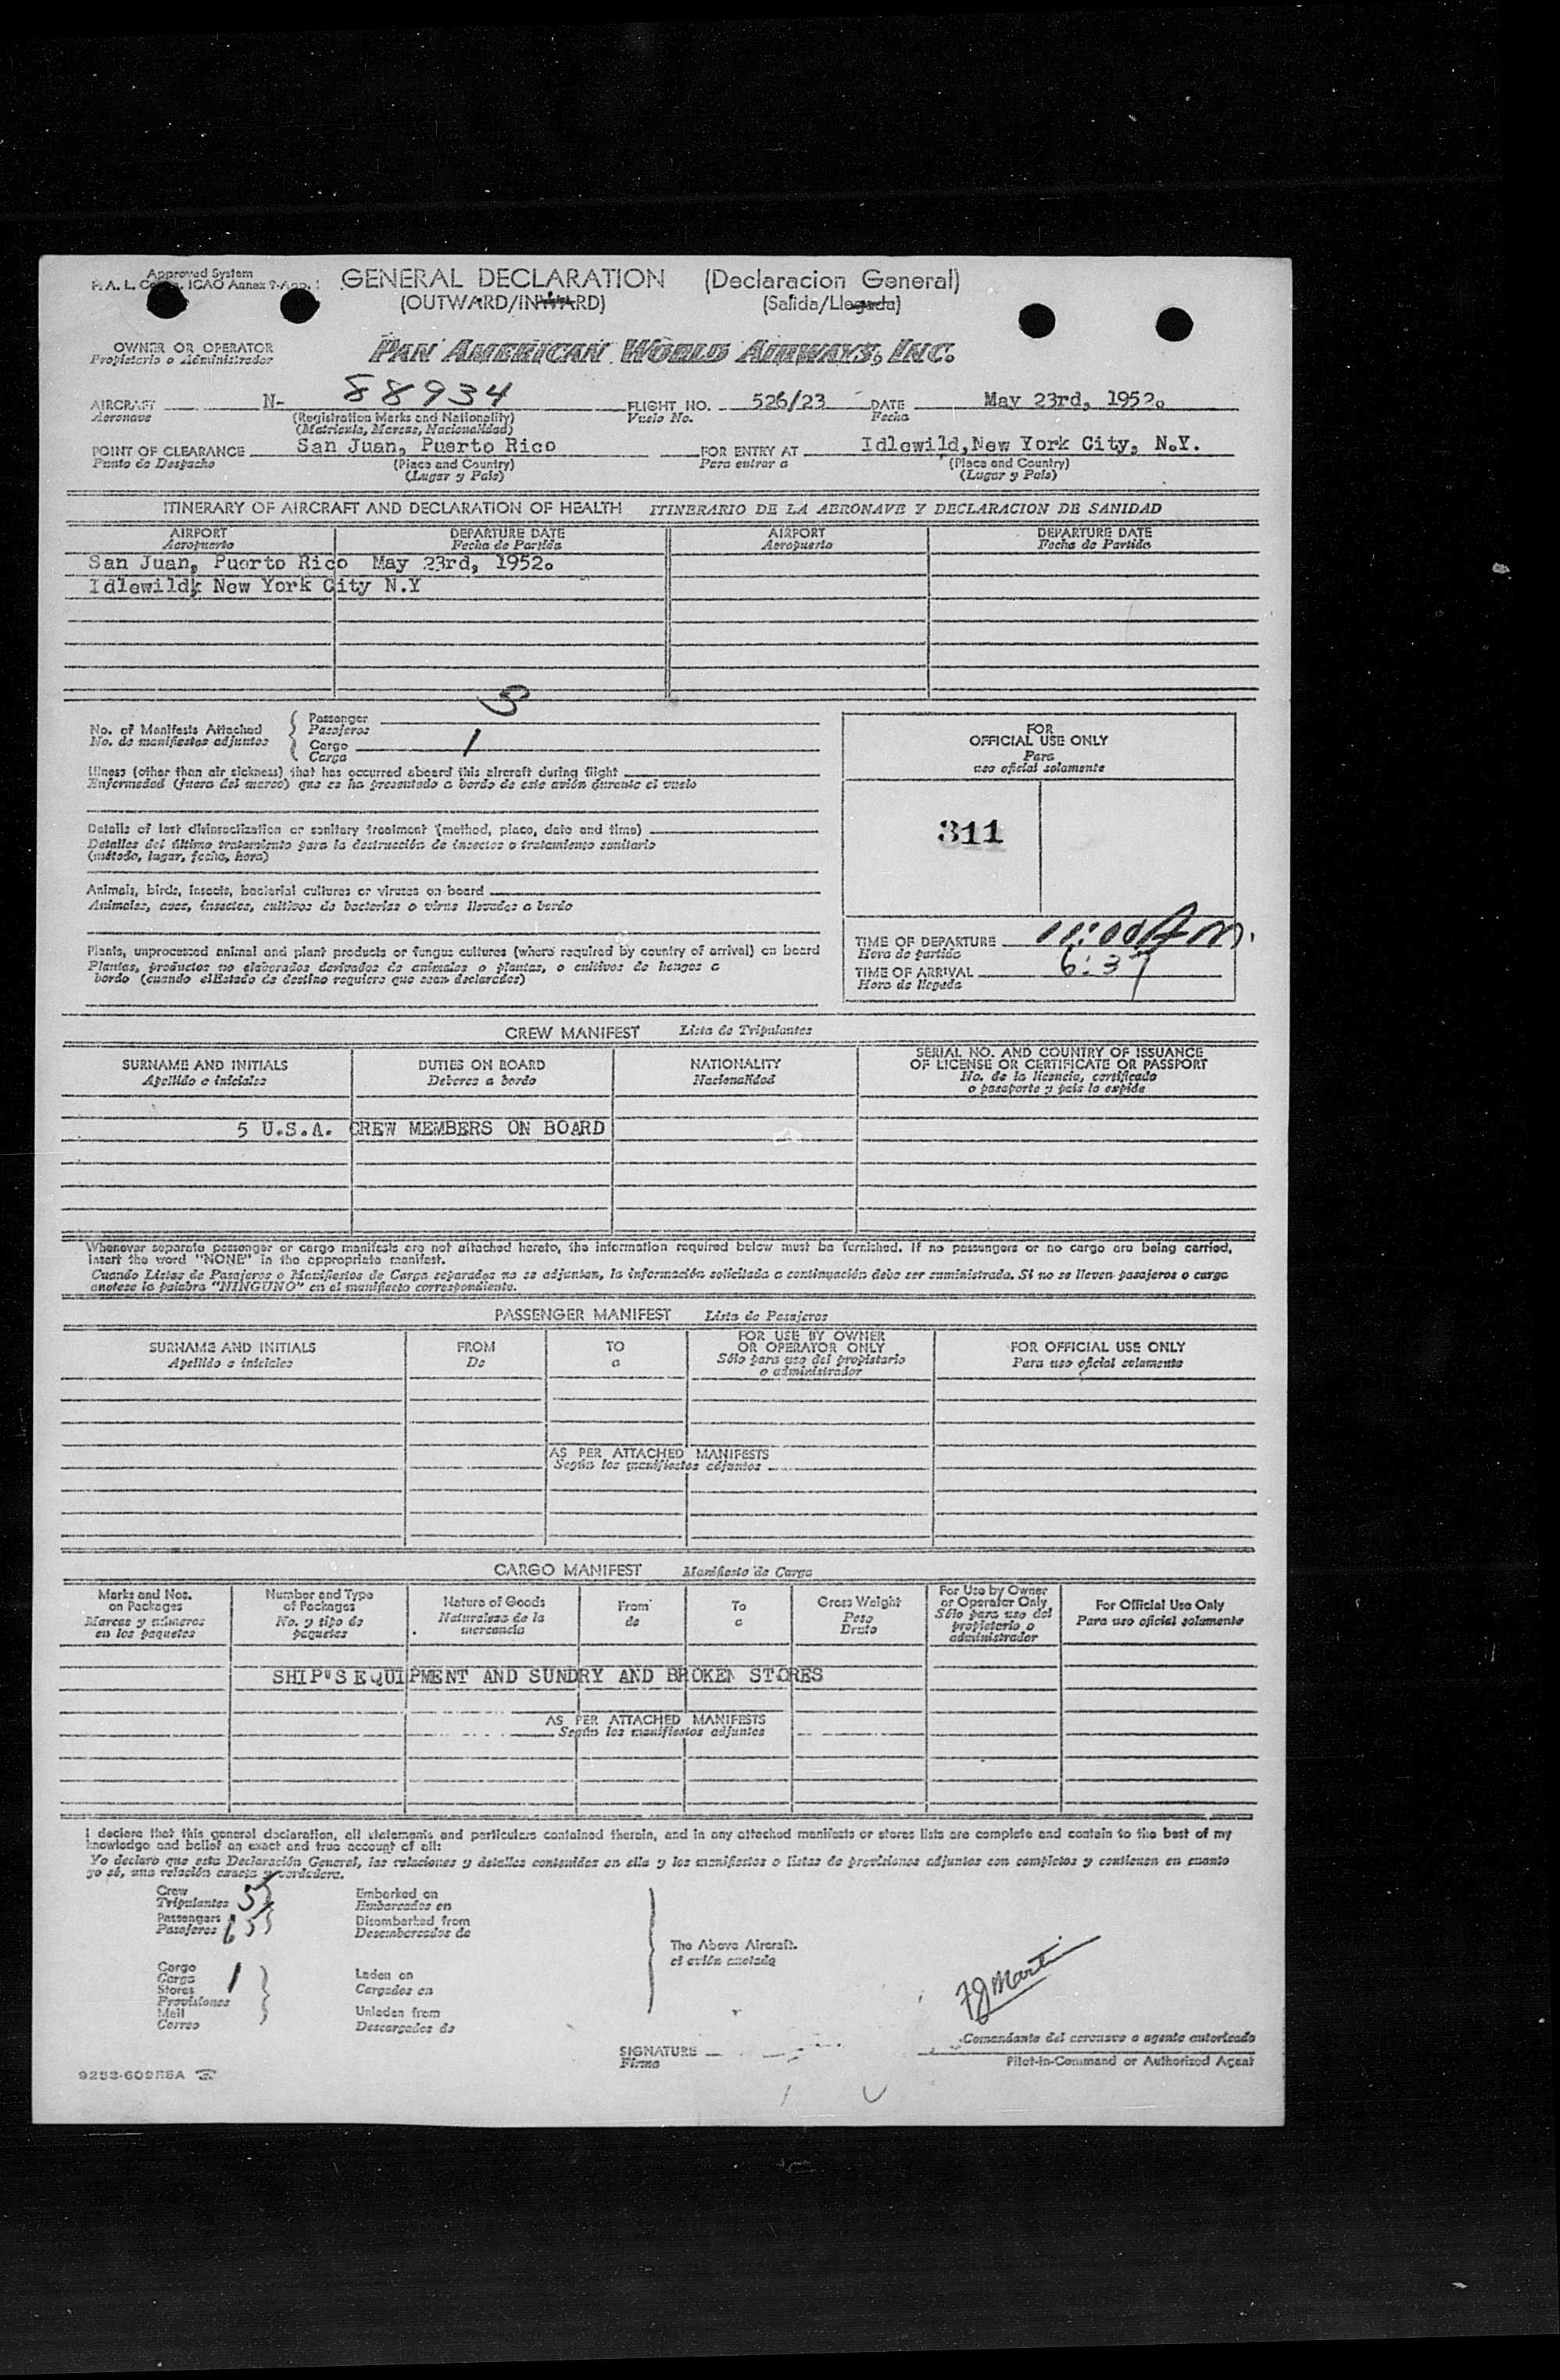 Approved System
P. A. L. ICAO Annex 9-App. 1
GENERAL DECLARATION (Declaracion General)
(OUTWARD/INWARD) (Salida/Llegada)
OWNER OR OPERATOR
Propietario o Administrador
PAN AMERICAN WORLD AIRWAYS, INC.
AIRCRAFT N- 88934 FLIGHT NO. 526/23 DATE May 23rd, 1952.
Aeronave (Registration Marks and Nationality) Vuelo No. Fecha
(Matricula, Marcas, Nacionalidad)
POINT OF CLEARANCE San Juan, Puerto Rico FOR ENTRY AT Idlewild, New York City, N.Y.
Punto de Despacho (Place and Country) Para entrar a (Place and Country)
(Lugar y Pais) (Lugar y Pais)
ITINERARY OF AIRCRAFT AND DECLARATION OF HEALTH ITINERARIO DE LA AERONAVE Y DECLARACION DE SANIDAD
AIRPORT DEPARTURE DATE AIRPORT DEPARTURE DATE
Aeropuerto Fecha de Partida Aeropuerto Fecha de Partida
San Juan, Puerto Rico May 23rd, 1952.
Idlewild, New York City N.Y
No. of Manifests Attached
No. de manifiestos adjuntos
Passenger 3
Pasajeros
Cargo 1
Carga
FOR
OFFICIAL USE ONLY
Para
uso oficial solamente
Illness (other than air sickness) that has occurred aboard this aircraft during flight
Enfermedad (fuera del mareo) que se ha presentado a bordo de este avión durante el vuelo
Details of last disinsectization or sanitary treatment (method, place, date and time)
Detalles del último tratamiento para la destrucción de insectos o tratamiento sanitario
(método, lugar, fecha, hora)
311
Animals, birds, insects, bacterial cultures or viruses on board
Animales, aves, insectos, cultivos de bacterias o virus llevados a bordo
Plants, unprocessed animal and plant products or fungus cultures (where required by country of arrival) on board
Plantas, productos no elaborados derivados de animales o plantas, o cultivos de hongos a
bordo (cuando elEstado de destino requiera que sean declarados)
TIME OF DEPARTURE 11:00 AM.
Hora de partida
TIME OF ARRIVAL 6:37
Hora de llegada
CREW MANIFEST Lista de Tripulantes
SURNAME AND INITIALS DUTIES ON BOARD NATIONALITY SERIAL NO. AND COUNTRY OF ISSUANCE
OF LICENSE OR CERTIFICATE OR PASSPORT
Apellido e iniciales Deberes a bordo Nacionalidad No. de la licencia, certificado
o pasaporte y pais lo expide
5 U.S.A. CREW MEMBERS ON BOARD
Whenever separate passenger or cargo manifests are not attached hereto, the information required below must be furnished. If no passengers or no cargo are being carried,
insert the word "NONE" in the appropriate manifest.
Cuando Listas de Pasajeros o Manifiestos de Carga separados no se adjuntan, la información solicitada a continuación debe ser suministrada. Si no se lleven pasajeros o carga
anotese la palabra "NINGUNO" en el manifiesto correspondiente.
PASSENGER MANIFEST Lista de Pasajeros
SURNAME AND INITIALS FROM TO FOR USE BY OWNER
OR OPERATOR ONLY FOR OFFICIAL USE ONLY
Apellido e iniciales De a Sólo para uso del propietario
o administrador Para uso oficial solamente
AS PER ATTACHED MANIFESTS
Según los manifiestos adjuntos
CARGO MANIFEST Manifiesto de Carga
Marks and Nos.
on Packages
Marcas y números
en los paquetes
Number and Type
of Packages
No. y tipo de
paquetes
Nature of Goods
Naturaleza de la
mercancia
From
de
To
a
Gross Weight
Peso
Bruto
For Use by Owner
or Operator Only
Sólo para uso del
propietario o
administrador
For Official Use Only
Para uso oficial solamente
SHIP'S EQUIPMENT AND SUNDRY AND BROKEN STORES
AS PER ATTACHED MANIFESTS
Según los manifiestos adjuntos
I declare that this general declaration, all statements and particulars contained therein, and in any attached manifests or stores lists are complete and contain to the best of my
knowledge and belief an exact and true account of all:
Yo declaro que esta Declaración General, las relaciones y detalles contenidos en ella y los manifiestos o listas de provisiones adjuntos son completos y contienen en cuanto
yo sé, una relación exacta y verdadera.
Crew
Tripulantes 5
Passengers
Pasajeros
Embarked on
Embarcados en
Disembarked from
Desembarcados de
Cargo
Carga 1
Stores
Provisiones
Mail
Correo
Laden on
Cargados en
Unladen from
Descargados de
The Above Aircraft.
el avión anotado
FJ Martin
SIGNATURE
Firma
Comandante del aeronave o agente autorizado
Pilot-in-Command or Authorized Agent